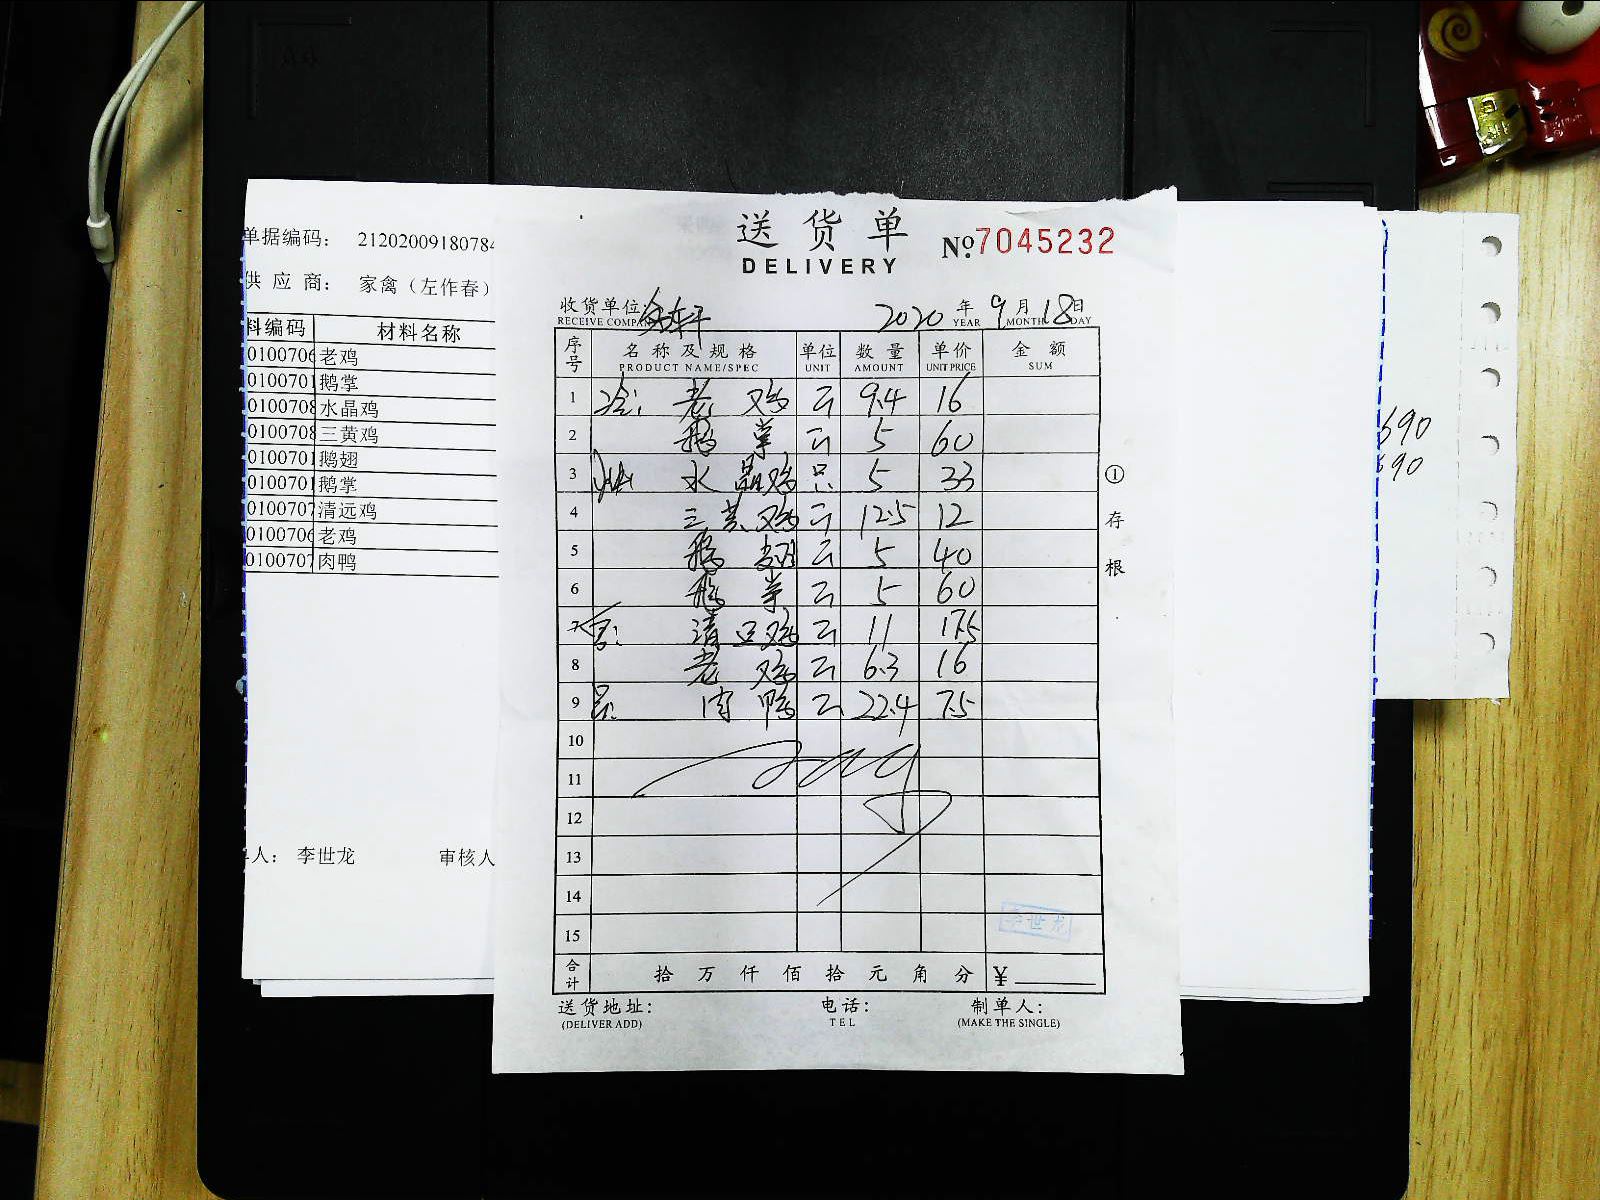 单据编码： 2120200918078
供应商： 家禽（左作春）
料编码 材料名称
0100706 老鸡
0100701 鹅掌
0100708 水晶鸡
0100708 三黄鸡
0100701 鹅翅
0100701 鹅掌
0100707 清远鸡
0100706 老鸡
0100707 肉鸭
人： 李世龙 审核人
送货单
DELIVERY
No.7045232
收货单位：
RECEIVE COMPAN
2020 年 9 月 18 日
YEAR MONTH DAY
序号 名称及规格 单位 数量 单价 金额
PRODUCT NAME/SPEC UNIT AMOUNT UNIT PRICE SUM
1 冷： 老鸡 斤 9.4 16
2 鹅掌 斤 5 60
3 水晶鸡 只 5 33
4 三黄鸡 斤 12.5 12
5 鹅翅 斤 5 40
6 鹅掌 斤 5 60
清远鸡 斤 11 17.5
8 老鸡 斤 6.3 16
9 肉鸭 斤 22.4 7.5
10
11
12
13
14
15
李世龙
合计 拾万仟佰拾元角分 ¥
送货地址： 电话： 制单人：
(DELIVER ADD) TEL (MAKE THE SINGLE)
①存根
690
690